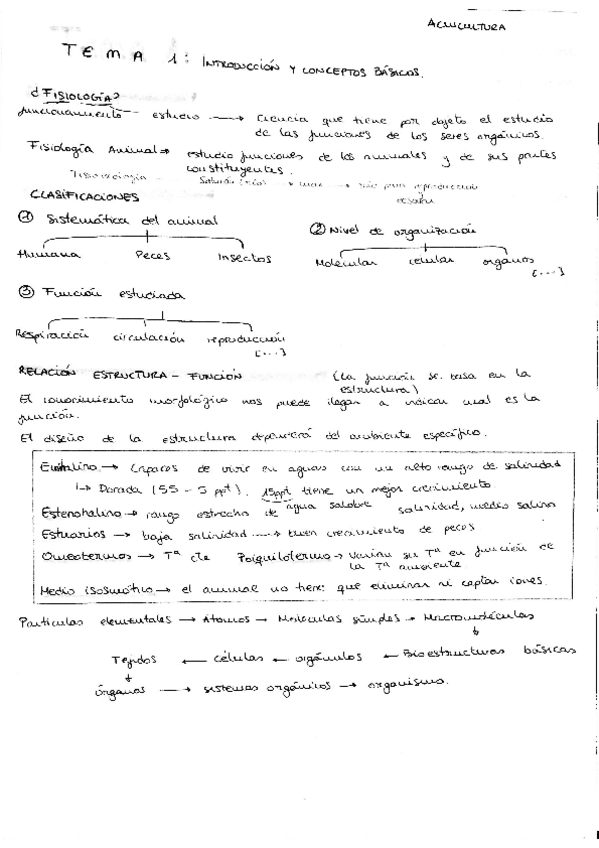 ACUICULTURA
TEMA 1: INTRODUCCIÓN Y CONCEPTOS BÁSICOS.
¿FISIOLOGÍA?
funcionamiento - estudio → Ciencia que tiene por objeto el estudio
de las funciones de los seres orgánicos.
Fisiología Animal → estudio funciones de los animales y de sus partes
constituyentes.
reproducción
CLASIFICACIONES
① Sistemática del animal
Humana Peces Insectos
② Nivel de organización
Molecular celular órganos
(...)
③ Función estudiada
Respiración circulación reproducción
(...)
RELACIÓN ESTRUCTURA - FUNCIÓN (La función se basa en la
estructura)
El conocimiento morfológico nos puede llegar a indicar cual es la
función.
El diseño de la estructura dependerá del ambiente específico.
Eurihalino → Capaces de vivir en aguas con un alto rango de salinidad
↳ Dorada (55 - 5 ppt). 15ppt tiene un mejor crecimiento
Estenohalino → rango estrecho de salinidad, medio salino
agua salobre
Estuarios → baja salinidad → buen crecimiento de peces
Omeotermos → Tª cte Poiquilotermo → Varían su Tª en función de
la Tª ambiente
Medio isosmótico → el animal no tiene que eliminar ni captar iones.
Partículas elementales → Átomos → Moléculas simples → Macromoléculas
Tejidos ← células ← orgánulos ← Bioestructuras básicas
órganos → sistemas orgánicos → organismo.